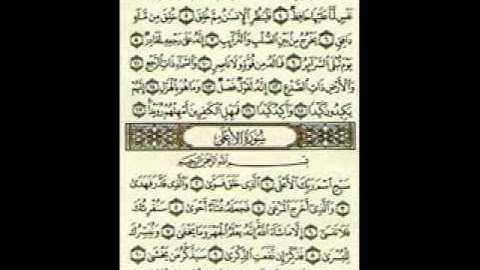 نَفْسٍ لَّمَّا عَلَيْهَا حَافِظٌ ٤ فَلْيَنظُرِ الْإِنسَٰنُ مِمَّ خُلِقَ ٥ خُلِقَ مِن مَّآءٍ
دَافِقٍ ٦ يَخْرُجُ مِنۢ بَيْنِ الصُّلْبِ وَالتَّرَآئِبِ ٧ إِنَّهُۥ عَلَىٰ رَجْعِهِۦ لَقَادِرٌ ٨
يَوْمَ تُبْلَى السَّرَآئِرُ ٩ فَمَا لَهُۥ مِن قُوَّةٍ وَلَا نَاصِرٍ ١٠ وَالسَّمَآءِ ذَاتِ الرَّجْعِ ١١
وَالْأَرْضِ ذَاتِ الصَّدْعِ ١٢ إِنَّهُۥ لَقَوْلٌ فَصْلٌ ١٣ وَمَا هُوَ بِالْهَزْلِ ١٤ إِنَّهُمْ
يَكِيدُونَ كَيْدًا ١٥ وَأَكِيدُ كَيْدًا ١٦ فَمَهِّلِ الْكَٰفِرِينَ أَمْهِلْهُمْ رُوَيْدًۢا ١٧
سُورَةُ الْأَعْلَىٰ
بِسْمِ اللَّهِ الرَّحْمَٰنِ الرَّحِيمِ
سَبِّحِ اسْمَ رَبِّكَ الْأَعْلَى ١ الَّذِى خَلَقَ فَسَوَّىٰ ٢ وَالَّذِى قَدَّرَ فَهَدَىٰ
٣ وَالَّذِىٓ أَخْرَجَ الْمَرْعَىٰ ٤ فَجَعَلَهُۥ غُثَآءً أَحْوَىٰ ٥ سَنُقْرِئُكَ
فَلَا تَنسَىٰٓ ٦ إِلَّا مَا شَآءَ اللَّهُ إِنَّهُۥ يَعْلَمُ الْجَهْرَ وَمَا يَخْفَىٰ ٧ وَنُيَسِّرُكَ
لِلْيُسْرَىٰ ٨ فَذَكِّرْ إِن نَّفَعَتِ الذِّكْرَىٰ ٩ سَيَذَّكَّرُ مَن يَخْشَىٰ ١٠